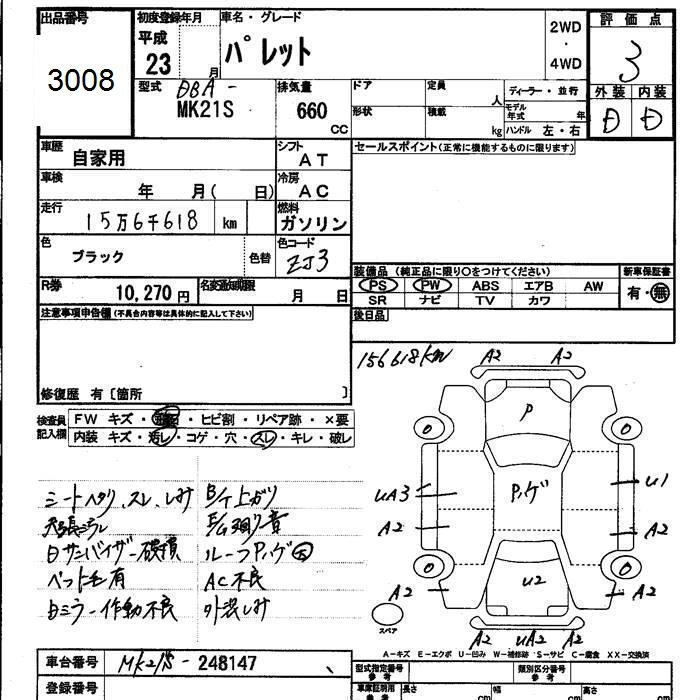 出品番号
3008
初度登録年月
平成
23 月
車名・グレード
パレット
2WD
・
4WD
評価点
3
外装 内装
D D
型式
DBA-
MK21S
排気量
660
CC
ドア
定員
人
形状
積載
kg
ディーラー・並行
モデル年式 年
ハンドル 左・右
車歴
自家用
シフト
AT
車検
年 月( 日)
冷房
AC
走行
15万6千618 km
燃料
ガソリン
色
ブラック
色替
色コード
ZJ3
R券
10,270円
名変通知期限
月 日
セールスポイント(正常に機能するものに限ります)
装備品 (純正品に限り○をつけてください)
PS PW ABS エアB AW
SR ナビ TV カワ
新車保証書
有・無
後日品
注意事項申告欄(不具合内容等は具体的に記入して下さい)
修復歴 有〔箇所 〕
検査員
記入欄
FW キズ・ ・ヒビ割・リペア跡・×要
内装 キズ・汚レ・コゲ・穴・スレ・キレ・破レ
シートヘタリ、スレ、しみ
天張汚レ
日サンバイザー破損
ペット毛有
白ミラー作動不良
B/ド上ガリ
E/G廻り音
ルーフP、ゲ大
AC不良
外装しみ
156618km
A2 A2
P
P、ゲ
U2
UA3
A2
A2
U1
A2
A2
A2 UA2 A2
スペア
A-キズ E-エクボ U-凹み W-補修跡 S-サビ C-腐食 XX-交換済
車台番号
MK21S-248147
登録番号
型式指定番号
参考
類別区分番号
参考
車庫証明用
参考
長さ cm
幅 cm
高さ cm